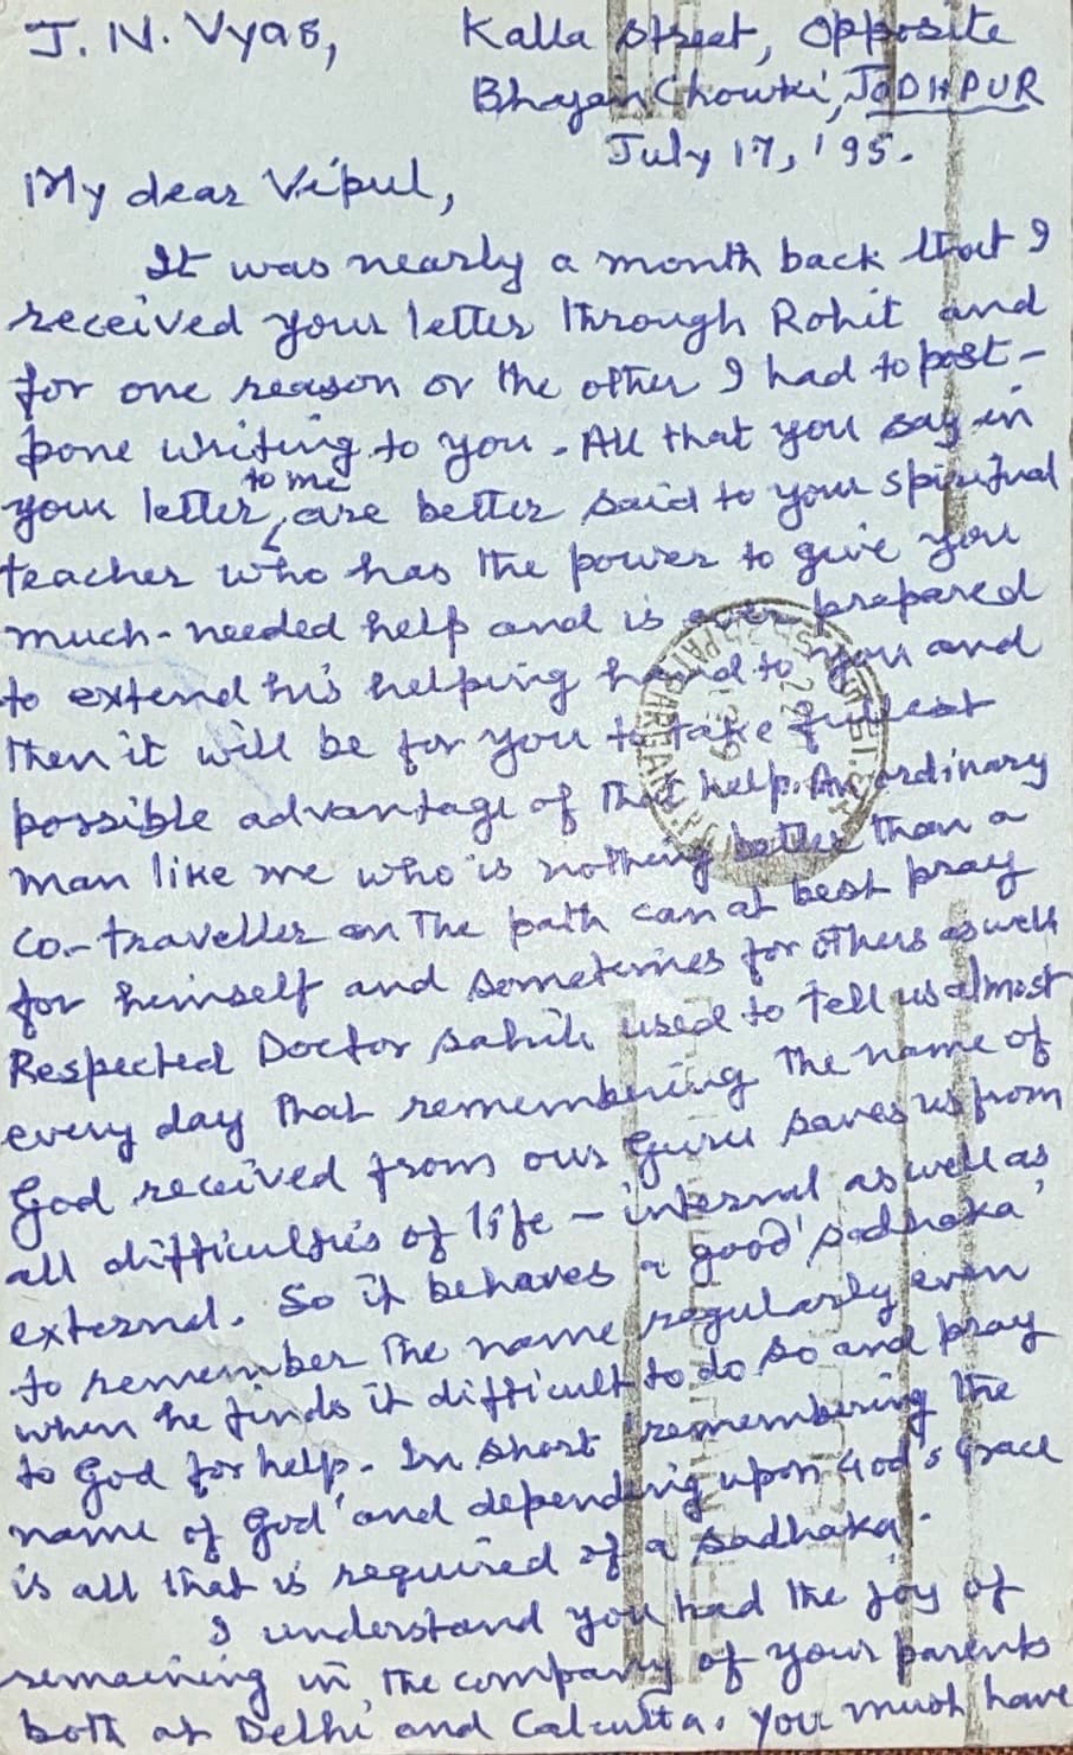 J. N. Vyas, Kalla Street, Opposite
Bhayan Chowki, JODHPUR
July 17, '95.
My dear Vipul,
It was nearly a month back that I
received your letter through Rohit and
for one reason or the other I had to post-
pone writing to you. All that you say in
your letter to me are better said to your spiritual
teacher who has the power to give you
much-needed help and is ever prepared
to extend his helping hand to you and
then it will be for you to take fullest
possible advantage of that help. An ordinary
man like me who is nothing better than a
co-traveller on the path can at best pray
for himself and sometimes for others as well
Respected Doctor sahib used to tell us almost
every day that remembering the name of
God received from our Guru saves us from
all difficulties of life - internal as well as
external. So it behaves a good 'sadhaka'
to remember the name regularly even
when he finds it difficult to do so and pray
to God for help. In short 'remembering the
name of God' and depending upon God's grace
is all that is required of a sadhaka.
I understand you had the joy of
remaining in the company of your parents
both at Delhi and Calcutta. You must have